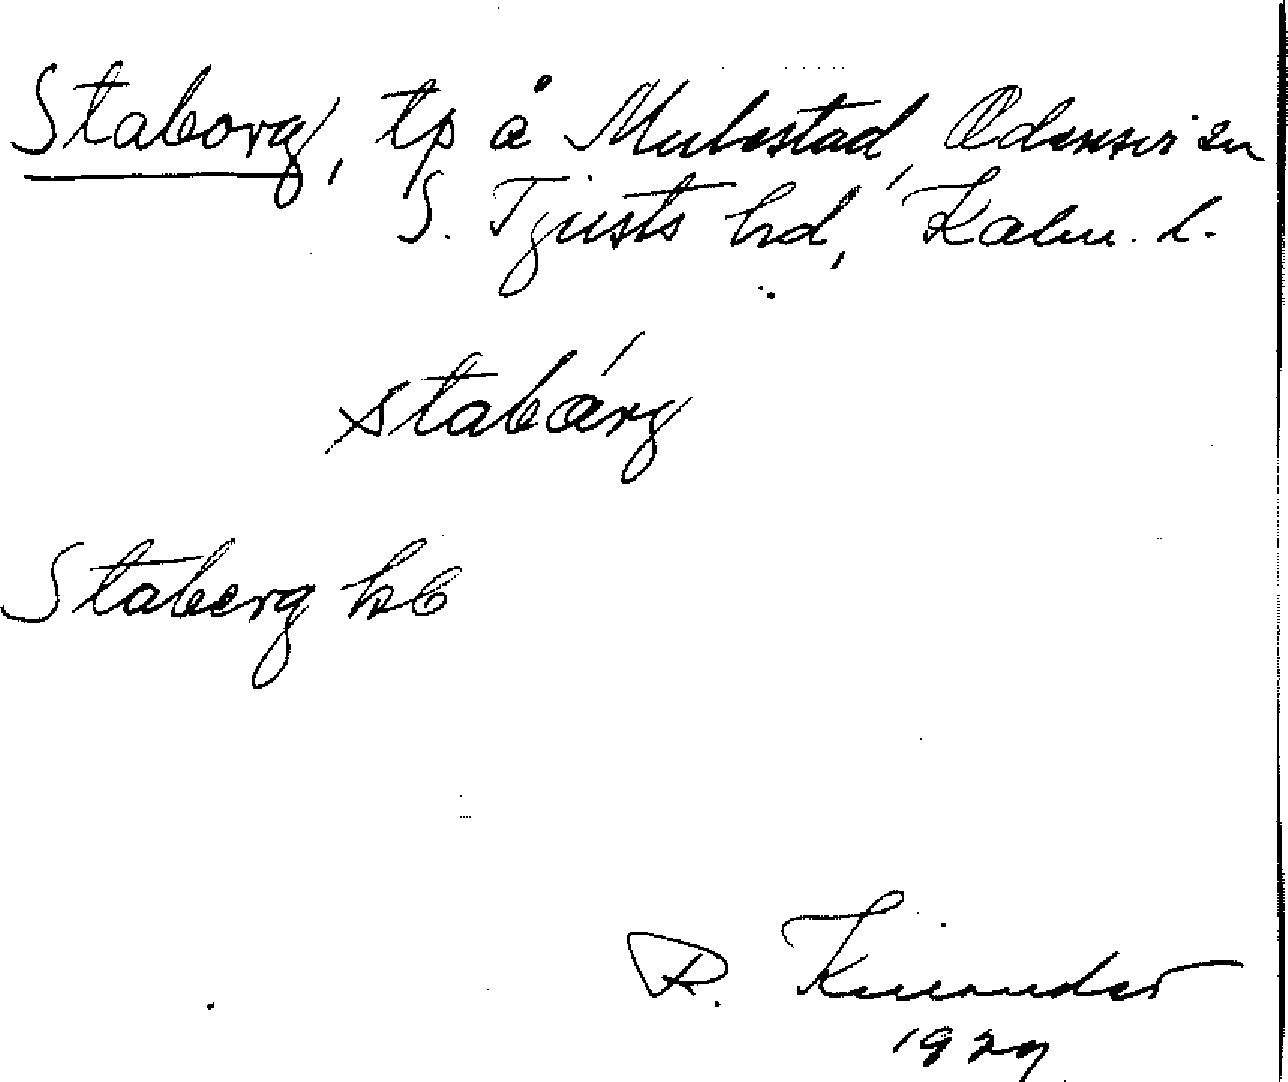 Staborg, tp å Mubestad, Odensvi sn
S. Tjusts hd, Kalm. l.
stabárg
Staberg hb
R. Kinander
1929